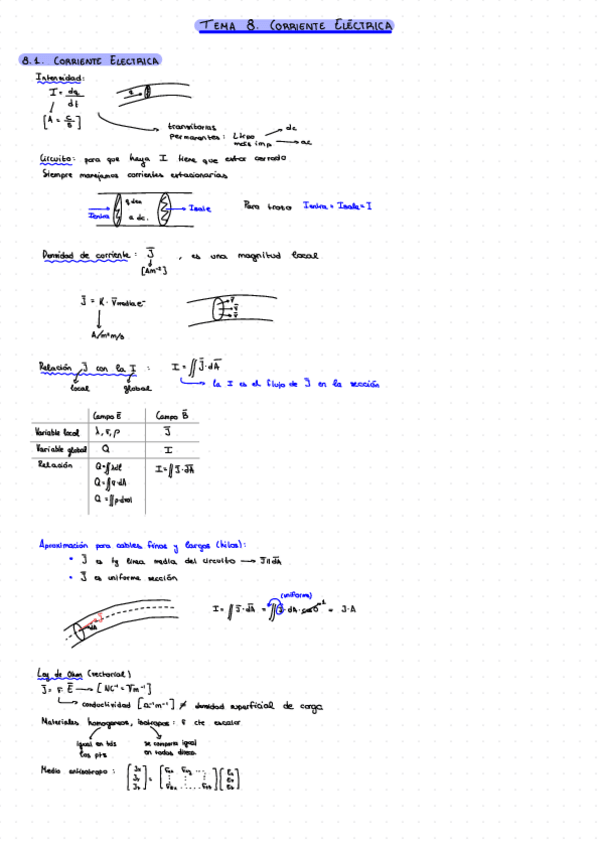 TEMA 8. CORRIENTE ELÉCTRICA
8.1. CORRIENTE ELECTRICA
Intensidad:
I = dq/dt
[A = C/s]
transitorias
permanentes: tipo → dc
más imp → ac
Circuito: para que haya I tiene que estar cerrado
Siempre manejamos corrientes estacionarias
Ientra
q den
a dc.
Isale
Para trozo Ientra = Isale = I
Densidad de corriente: J, es una magnitud local
[Am⁻²]
J = K · Vmedia e⁻
Relación J con la I: I = ∬ J · dA
local global
la I es el flujo de J en la sección
Campo E Campo B
Variable local λ, σ, ρ J
Variable global Q I
Relación Q = ∫ λdl I = ∬ J · dA
Q = ∬ σ · dA
Q = ∭ ρ · dvol
Aproximación para cables finos y largos (hilos):
• J es tg línea media del circuito → J ∥ dA
• J es uniforme sección
(uniforme)
I = ∬ J · dA = ∬ J · dA · cos 0 = J · A
dA
Ley de Ohm (vectorial)
J = σ E → [NC⁻¹ = Vm⁻¹]
conductividad [Ω⁻¹m⁻¹] ≠ densidad superficial de carga
Materiales homogeneos, isotropos: σ cte escalar
igual en tds
los pts
se comporta igual
en todas direcc.
Medio anisotropo: